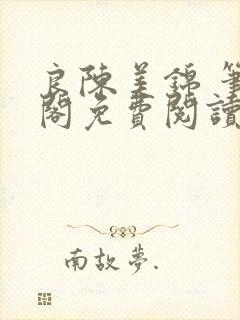 良陳美錦 筆
閣免費閱讀
南故夢.